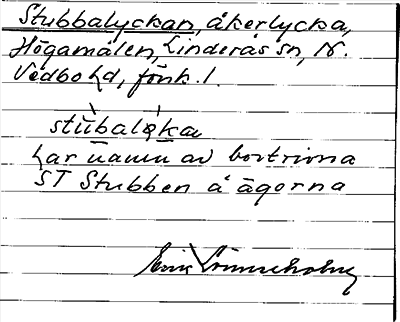 Stubbalyckan, åkerlycka,
Högamålen, Linderås sn, N.
Vedbo hd, Jönk. l.
stubaløka
har namn av bortrivna
ST Stubben å ägorna